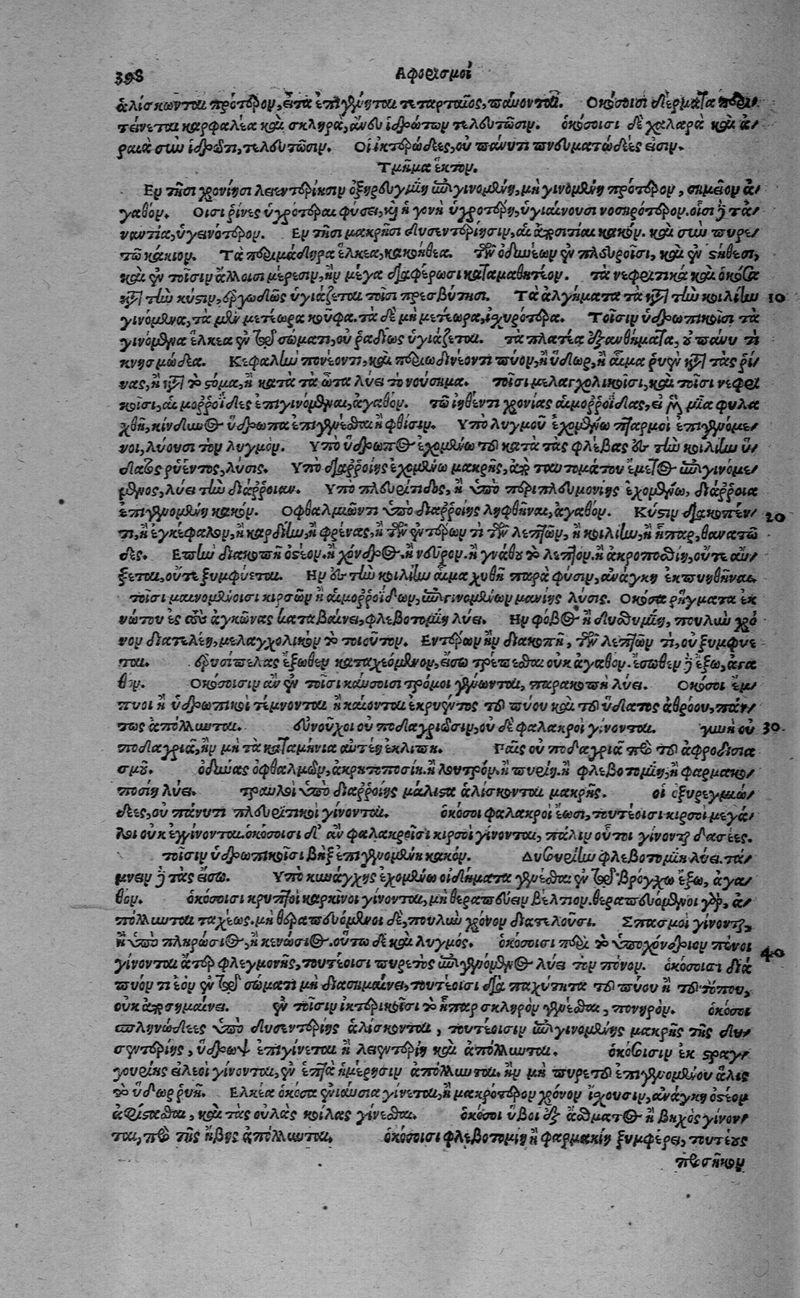 398 Αφορισμοὶ
ἁλίσκωνται πρότερον, εἶτα ἐπιγένηται τεταρταῖος, παύονται. Οκόσοισι δέρματα περι-
τείνεται καρφαλέα καὶ σκληρὰ, ἄνευ ἱδρώτων τελευτῶσιν. ὁκόσοισι δὲ χαλαρὰ καὶ ἀ-
ραιὰ σὺν ἱδρῶτι, τελευτῶσιν. Οἱ ἰκτερώδεες, οὐ πάνυτι πνευματώδεές εἰσιν.
Τμῆμα ἕκτον.
Εν τῇσι χρονίῃσι λειεντερίῃσιν ὀξυρεγμίη ἐπιγινομένη, μὴ γινομένη πρότερον, σημεῖον ἀ-
γαθόν. Οισι ῥῖνες ὑγρότεραι φύσει, καὶ ἡ γονὴ ὑγροτέρη, ὑγιαίνουσι νοσηρότερον. οἷσι δὲ τἀ-
ναντία, ὑγεινότερον. Εν τῇσι μακρῇσι δυσεντερίῃσιν, αἱ ἀποσιτίαι κακόν. καὶ σὺν πυρε-
τῷ κάκιον. Τὰ περιμάδαρα ἕλκεα, κακοήθεα. Τῶν ὀδυνέων ἐν πλευροῖσι, καὶ ἐν στήθεσι,
καὶ ἐν τοῖσιν ἄλλοισι μέρεσιν, ἢν μέγα διαφέρωσι καταμαθητέον. τὰ νεφριτικὰ καὶ ὁκόσα
κατὰ τὴν κύστιν, ἐργωδῶς ὑγιάζεται τοῖσι πρεσβύτῃσι. Τὰ ἀλγήματα τὰ κατὰ τὴν κοιλίην 10
γινόμενα, τὰ μὲν μετέωρα κοῦφα. τὰ δὲ μὴ μετέωρα, ἰσχυρότερα. Τοῖσιν ὑδρωπικοῖσι τὰ
γινόμενα ἕλκεα ἐν τῷ σώματι, οὐ ῥᾳδίως ὑγιάζεται. τὰ πλατέα ἐξανθήματα, οὐ πάνυ τι
κνησμώδεα. Κεφαλὴν πονέοντι, καὶ περιωδυνέοντι πύον, ἢ ὕδωρ, ἢ αἷμα ῥυὲν κατὰ τὰς ῥῖ-
νας, ἢ κατὰ τὸ στόμα, ἢ κατὰ τὰ ὦτα λύει τὸ νούσημα. τοῖσι μελαγχολικοῖσι, καὶ τοῖσι νεφρι-
τικοῖσι, αἱμορροΐδες ἐπιγινόμεναι, ἀγαθόν. τῷ ἰηθέντι χρονίας αἱμορροΐδας, εἰ μὴ μία φυλα
χθῇ, κίνδυνος ὕδρωπα ἐπιγενέσθαι ἢ φθίσιν. Υπὸ λυγμοῦ ἐχομένῳ πταρμοὶ ἐπιγενόμε-
νοι, λύουσι τὸν λυγμόν. Υπὸ ὕδρωπος ἐχομένῳ τοῦ κατὰ τὰς φλέβας ἐς τὴν κοιλίην ὕ-
δατος ῥυέντος, λύσις. Υπὸ διαρροίης ἐχομένῳ μακρῆς, ἀπὸ ταυτομάτου ἔμετος ἐπιγινόμε-
νος, λύει τὴν διάρροιαν. Υπὸ πλευρίτιδος, ἢ ὑπὸ περιπλευμονίης ἐχομένῳ, διάρροια
ἐπιγενομένη κακόν. Οφθαλμιῶντι ὑπὸ διαρροίης ληφθῆναι, ἀγαθόν. Κύστιν διακοπέν-
τι, ἢ ἐγκέφαλον, ἢ καρδίην, ἢ φρένας, ἢ τῶν ἐντέρων τι τῶν λεπτῶν, ἢ κοιλίην, ἢ ἧπαρ, θανατῶ 20
δες. Επὴν διακοπῇ ὀστέον. ἢ χόνδρος. ἢ νεῦρον. ἢ γνάθου τὸ λεπτὸν. ἢ ἀκροποσθίη, οὔτε αὔ-
ξεται, οὔτε ξυμφύεται. Ην ἐς τὴν κοιλίην αἷμα χυθῇ παρὰ φύσιν, ἀνάγκη ἐκπυηθῆναι.
τοῖσι μαινομένοισι κιρσῶν ἢ αἱμορροΐδων, ἐπιγινομένων μανίης λύσις. Οκόσα ῥήγματα ἐκ
νώτου ἐς τοὺς ἀγκῶνας καταβαίνει, φλεβοτομίη λύει. Ην φόβος ἢ δυσθυμίη, πουλὺν χρό
νον διατελέῃ, μελαγχολικὸν τὸ τοιοῦτον. Εντέρων ἢν διακοπῇ, τῶν λεπτῶν τι, οὐ ξυμφύε
ται. ἐρυσίπελας ἔξωθεν καταχεόμενον, εἴσω τρέπεσθαι οὐκ ἀγαθόν. ἔσωθεν δὲ ἔξω, ἀγα
θόν. Οκόσοισιν ἂν ἐν τοῖσι καύσοισι τρόμοι γένωνται, παρακοπὴ λύει. Οκόσοι ἔμ-
πυοι ἢ ὑδρωπικοὶ τέμνονται ἢ καίονται ἐκρυέντος τοῦ πύου καὶ τοῦ ὕδατος ἀθρόου, πάν-
τως ἀπόλλυνται. εὐνοῦχοι οὐ ποδαγριῶσιν, οὐδὲ φαλακροὶ γίνονται. γυνὴ οὐ 30
ποδαγριᾷ, ἢν μὴ τὰ καταμήνια αὐτέῃ ἐκλίπῃ. Παῖς οὐ ποδαγριᾷ πρὸ τοῦ ἀφροδισια
σμοῦ. ὀδύνας ὀφθαλμῶν, ἀκρητοποσίη. ἢ λουτρὸν. ἢ πυρίη. ἢ φλεβοτομίη, ἢ φαρμακο-
ποσίη λύει. τραυλοὶ ὑπὸ διαρροίης μάλιστα ἁλίσκονται μακρῆς. οἱ ὀξυρεγμιώ-
δεες, οὐ πάνυτι πλευριτικοὶ γίνονται. ὁκόσοι φαλακροὶ ἔωσι, τουτέοισι κιρσοὶ μεγά-
λοι οὐκ ἐγγίνονται. ὁκόσοισι δ' ἂν φαλακροῖσι κιρσοὶ γίνονται, πάλιν οὗτοι γίνονται δασέες.
τοῖσιν ὑδρωπικοῖσι βὴξ ἐπιγενομένη κακόν. Δυσουρίην φλεβοτομίη λύει. τά-
μνειν δὲ τὰς ἔσω. Υπὸ κυνάγχης ἐχομένῳ οἰδήματα γενέσθαι ἐν τῷ βρόγχῳ ἔξω, ἀγα-
θόν. ὁκόσοισι κρυπτοὶ καρκίνοι γίνονται, μὴ θεραπεύειν βέλτιον. θεραπευόμενοι γὰρ, ἀ-
πόλλυνται ταχέως. μὴ θεραπευόμενοι δὲ, πουλὺν χρόνον διατελοῦσι. Σπασμοὶ γίνονται,
ἢ ὑπὸ πληρώσιος, ἢ κενώσιος. οὕτω δὲ καὶ λυγμός. ὁκόσοισι περὶ τὸ ὑποχόνδριον πόνοι
γίνονται ἄτερ φλεγμονῆς, τουτέοισι πυρετὸς ἐπιγενόμενος λύει τὸν πόνον. ὁκόσοισι διά 40
πυον τι ἐὸν ἐν τῷ σώματι μὴ διασημαίνει, τουτέοισι διὰ παχύτητα τοῦ πύου ἢ τοῦ τόπου,
οὐκ ἀποσημαίνει. ἐν τοῖσιν ἰκτερικοῖσι τὸ ἧπαρ σκληρὸν γενέσθαι, πονηρόν. ὁκόσοι
σπληνώδεες ὑπὸ δυσεντερίης ἁλίσκονται, τουτέοισιν ἐπιγινομένης μακρῆς τῆς δυ-
σεντερίης, ὕδρωψ ἐπιγίνεται ἢ λειεντερίη καὶ ἀπόλλυνται. ὁκόσοισιν ἐκ στραγ-
γουρίης εἰλεοὶ γίνονται, ἐν ἑπτὰ ἡμέρῃσιν ἀπόλλυνται. ἢν μὴ πυρετοῦ ἐπιγενομένου ἅλις
τὸ ὕδωρ ῥυῇ. Ελκέα ὁκόσα ἐνιαύσια γίνεται, ἢ μακρότερον χρόνον ἴσχουσιν, ἀνάγκη ὀστέον
ἀφίστασθαι, καὶ τὰς οὐλὰς κοίλας γίνεσθαι. ὁκόσοι ὗβοι ἐξ ἄσθματος ἢ βηχὸς γίνον-
ται, πρὸ τῆς ἥβης ἀπόλλυνται. ὁκόσοισι φλεβοτομίη ἢ φαρμακίη ξυμφέρει, τουτέους
προσῆκον